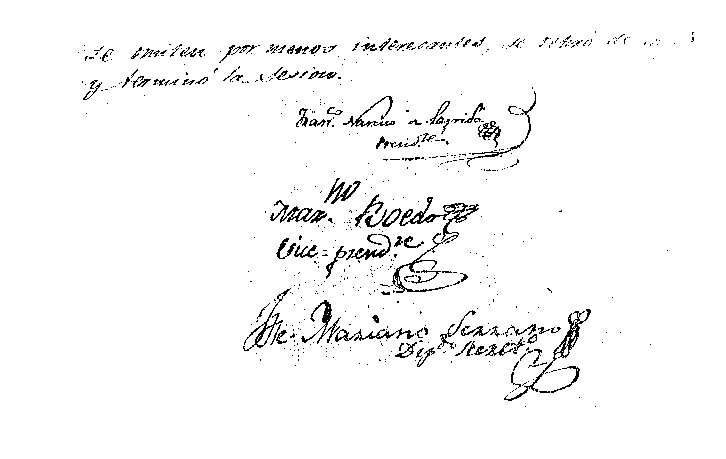 se omiten por menos interesantes, se trató de
y terminó la sesion.
Fran.co Narciso de Laprida
Presid.te
Mar.no Boedo
Vice-presid.te
Jse. Mariano Serrano
Dip.do Secret.o